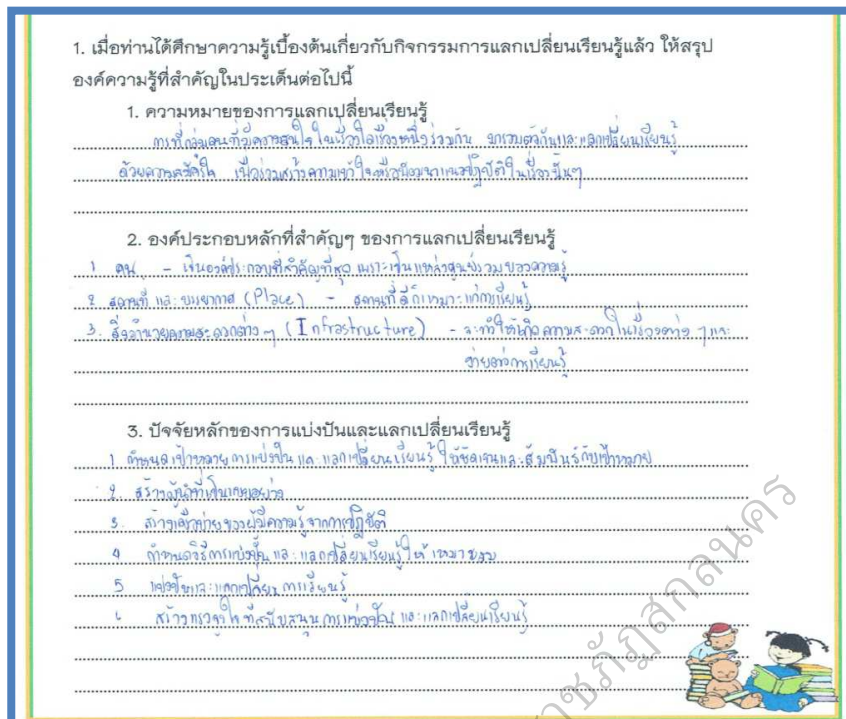 1. เมื่อท่านได้ศึกษาความรู้เบื้องต้นเกี่ยวกับกิจกรรมการแลกเปลี่ยนเรียนรู้แล้ว ให้สรุป
องค์ความรู้ที่สำคัญในประเด็นต่อไปนี้
1. ความหมายของการแลกเปลี่ยนเรียนรู้
การที่กลุ่มคนที่มีความสนใจ ในเรื่องใดเรื่องหนึ่งร่วมกัน มารวมตัวกันและแลกเปลี่ยนเรียนรู้
ด้วยความสมัครใจ เพื่อร่วมสร้างความเข้าใจหรือพัฒนาแนวปฏิบัติในเรื่องนั้นๆ
2. องค์ประกอบหลักที่สำคัญๆ ของการแลกเปลี่ยนเรียนรู้
1 คน - เป็นองค์ประกอบที่สำคัญที่สุด เพราะเป็นแหล่งศูนย์รวมของความรู้
2 สถานที่ และบรรยากาศ (Place) - สถานที่ดีเหมาะแก่การเรียนรู้
3. สิ่งอำนวยความสะดวกต่าง ๆ (Infrastructure) - จะทำให้เกิดความสะดวกในเรื่องต่าง ๆ และ
ง่ายต่อการเรียนรู้
3. ปัจจัยหลักของการแบ่งปันและแลกเปลี่ยนเรียนรู้
1 กำหนดเป้าหมาย การแบ่งปัน และแลกเปลี่ยนเรียนรู้ ให้ชัดเจนและสัมพันธ์กับเป้าหมาย
2. สร้างผู้นำที่เป็น
3. สร้างเครือข่ายของผู้มีความรู้จากการปฏิบัติ
4 กำหนดวิธีการแบ่งปัน และแลกเปลี่ยนเรียนรู้ให้เหมาะสม
5 แบ่งปันและแลกเปลี่ยน การเรียนรู้
6 สร้างแรงจูงใจ ที่สนับสนุน การแบ่งปัน และแลกเปลี่ยนเรียนรู้
ราชภัฏสกลนคร